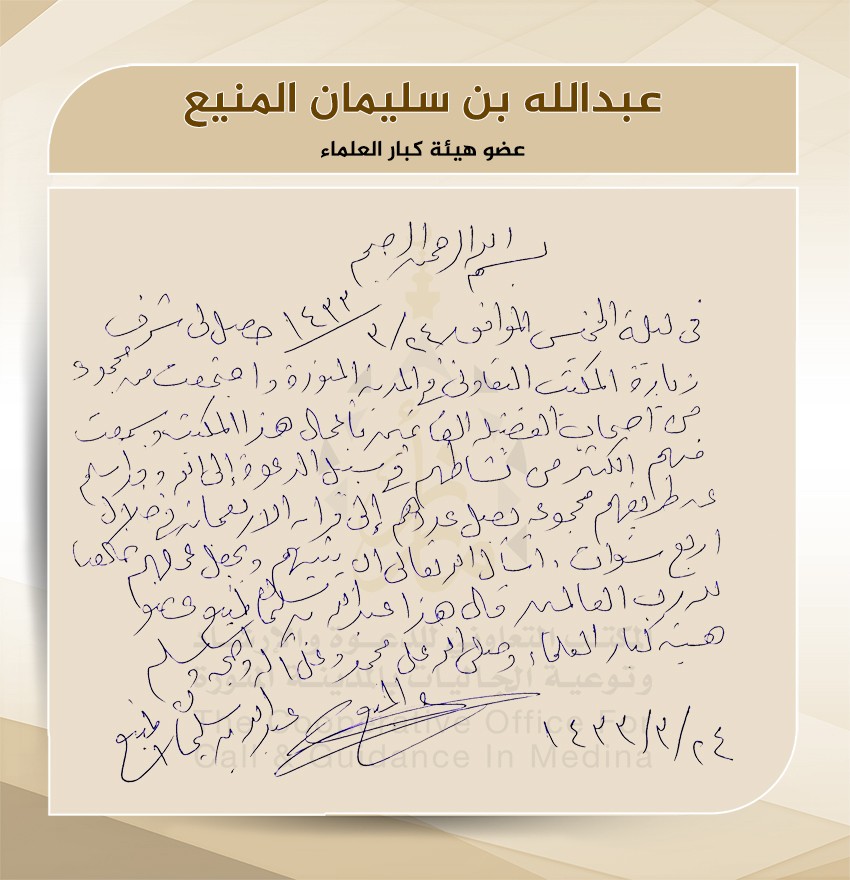 عبدالله بن سليمان المنيع
عضو هيئة كبار العلماء
بسم الله الرحمن الرحيم
في ليلة الخميس الموافق ١٤٣٣/٣/٢٤ حصل لي شرف
زيارة المكتب التعاوني في المدينة المنورة واجتمعت مع مجموعة
من أصحاب الفضيلة القائمين بأعمال هذا المكتب وسمعت
منهم الكثير من نشاطهم في سبيل الدعوة إلى الله وإسلام
عن طريقهم مجموعة يصل عددهم إلى قرابة الأربعمائة في خلال
أربع سنوات، أسأل الله تعالى أن يثيبهم ويجعل عملهم خالصا
لله رب العالمين قال هذا عبدالله بن سليمان المنيع عضو
هيئة كبار العلماء وصلى الله على محمد وعلى آله وصحبه وسلم
المنيع
عبدالله بن سليمان المنيع
١٤٣٣/٣/٢٤
المكتب التعاوني للدعوة والإرشاد
وتوعية الجاليات بالمدينة المنورة
The Cooperative Office For
Call & Guidance In Medina